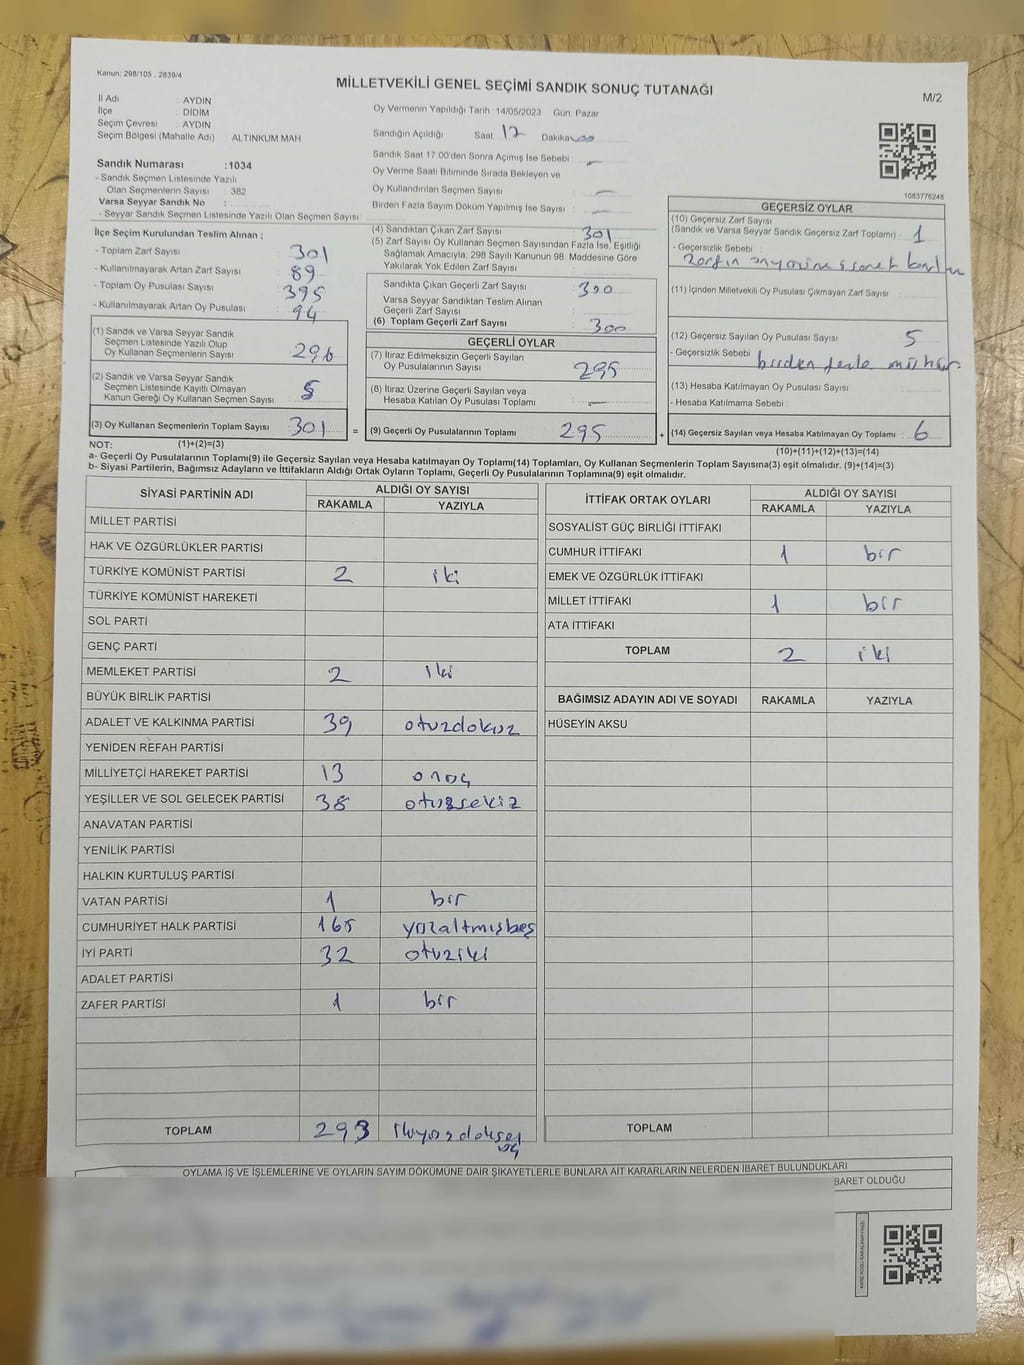 Kanun; 298/105 , 2839/4
MİLLETVEKİLİ GENEL SEÇİMİ SANDIK SONUÇ TUTANAĞI
M/2
İl Adı : AYDIN
İlçe : DİDİM
Seçim Çevresi : AYDIN
Seçim Bölgesi (Mahalle Adı) : ALTINKUM MAH
Oy Vermenin Yapıldığı Tarih : 14/05/2023 Gün: Pazar
Sandığın Açıldığı Saat 17 Dakika 00
Sandık Saat 17:00'den Sonra Açımış İse Sebebi : —
Oy Verme Saati Bitiminde Sırada Bekleyen ve
Oy Kullandırılan Seçmen Sayısı : —
Birden Fazla Sayım Döküm Yapılmış İse Sayısı : —
Sandık Numarası :1034
- Sandık Seçmen Listesinde Yazılı
Olan Seçmenlerin Sayısı : 382
Varsa Seyyar Sandık No :
- Seyyar Sandık Seçmen Listesinde Yazılı Olan Seçmen Sayısı:
1083776246
İlçe Seçim Kurulundan Teslim Alınan ;
- Toplam Zarf Sayısı : 301
- Kullanılmayarak Artan Zarf Sayısı : 89
- Toplam Oy Pusulası Sayısı : 395
- Kullanılmayarak Artan Oy Pusulası : 94
(1) Sandık ve Varsa Seyyar Sandık
Seçmen Listesinde Yazılı Olup
Oy Kullanan Seçmenlerin Sayısı : 296
(2) Sandık ve Varsa Seyyar Sandık
Seçmen Listesinde Kayıtlı Olmayan
Kanun Gereği Oy Kullanan Seçmen Sayısı : 5
(3) Oy Kullanan Seçmenlerin Toplam Sayısı : 301 =
(4) Sandıktan Çıkan Zarf Sayısı : 301
(5) Zarf Sayısı Oy Kullanan Seçmen Sayısından Fazla İse, Eşitliği
Sağlamak Amacıyla, 298 Sayılı Kanunun 98. Maddesine Göre
Yakılarak Yok Edilen Zarf Sayısı :
Sandıkta Çıkan Geçerli Zarf Sayısı : 300
Varsa Seyyar Sandıktan Teslim Alınan
Geçerli Zarf Sayısı :
(6) Toplam Geçerli Zarf Sayısı : 300
GEÇERLİ OYLAR
(7) İtiraz Edilmeksizin Geçerli Sayılan
Oy Pusulalarının Sayısı : 295
(8) İtiraz Üzerine Geçerli Sayılan veya
Hesaba Katılan Oy Pusulası Toplamı : —
(9) Geçerli Oy Pusulalarının Toplamı : 295 +
GEÇERSİZ OYLAR
(10) Geçersiz Zarf Sayısı
(Sandık ve Varsa Seyyar Sandık Geçersiz Zarf Toplamı) : 1
- Geçersizlik Sebebi :
(11) İçinden Milletvekili Oy Pusulası Çıkmayan Zarf Sayısı :
(12) Geçersiz Sayılan Oy Pusulası Sayısı : 5
- Geçersizlik Sebebi : birden fazla mühür
(13) Hesaba Katılmayan Oy Pusulası Sayısı :
- Hesaba Katılmama Sebebi :
(14) Geçersiz Sayılan veya Hesaba Katılmayan Oy Toplamı : 6
NOT: (1)+(2)=(3)
(10)+(11)+(12)+(13)=(14)
a- Geçerli Oy Pusulalarının Toplamı(9) ile Geçersiz Sayılan veya Hesaba katılmayan Oy Toplamı(14) Toplamları, Oy Kullanan Seçmenlerin Toplam Sayısına(3) eşit olmalıdır. (9)+(14)=(3)
b- Siyasi Partilerin, Bağımsız Adayların ve İttifakların Aldığı Ortak Oyların Toplamı, Geçerli Oy Pusulalarının Toplamına(9) eşit olmalıdır.
SİYASİ PARTİNİN ADI
ALDIĞI OY SAYISI
RAKAMLA YAZIYLA
MİLLET PARTİSİ
HAK VE ÖZGÜRLÜKLER PARTİSİ
TÜRKİYE KOMÜNİST PARTİSİ 2 iki
TÜRKİYE KOMÜNİST HAREKETİ
SOL PARTİ
GENÇ PARTİ
MEMLEKET PARTİSİ 2 iki
BÜYÜK BİRLİK PARTİSİ
ADALET VE KALKINMA PARTİSİ 39 otuzdokuz
YENİDEN REFAH PARTİSİ
MİLLİYETÇİ HAREKET PARTİSİ 13 onüç
YEŞİLLER VE SOL GELECEK PARTİSİ 38 otuzsekiz
ANAVATAN PARTİSİ
YENİLİK PARTİSİ
HALKIN KURTULUŞ PARTİSİ
VATAN PARTİSİ 1 bir
CUMHURİYET HALK PARTİSİ 165 yüzaltmışbeş
İYİ PARTİ 32 otuziki
ADALET PARTİSİ
ZAFER PARTİSİ 1 bir
TOPLAM 293 ikiyüzdoksan
üç
İTTİFAK ORTAK OYLARI
ALDIĞI OY SAYISI
RAKAMLA YAZIYLA
SOSYALİST GÜÇ BİRLİĞİ İTTİFAKI
CUMHUR İTTİFAKI 1 bir
EMEK VE ÖZGÜRLÜK İTTİFAKI
MİLLET İTTİFAKI 1 bir
ATA İTTİFAKI
TOPLAM 2 iki
BAĞIMSIZ ADAYIN ADI VE SOYADI RAKAMLA YAZIYLA
HÜSEYİN AKSU
TOPLAM
OYLAMA İŞ VE İŞLEMLERİNE VE OYLARIN SAYIM DÖKÜMÜNE DAİR ŞİKAYETLERLE BUNLARA AİT KARARLARIN NELERDEN İBARET BULUNDUKLARI
BARET OLDUĞU